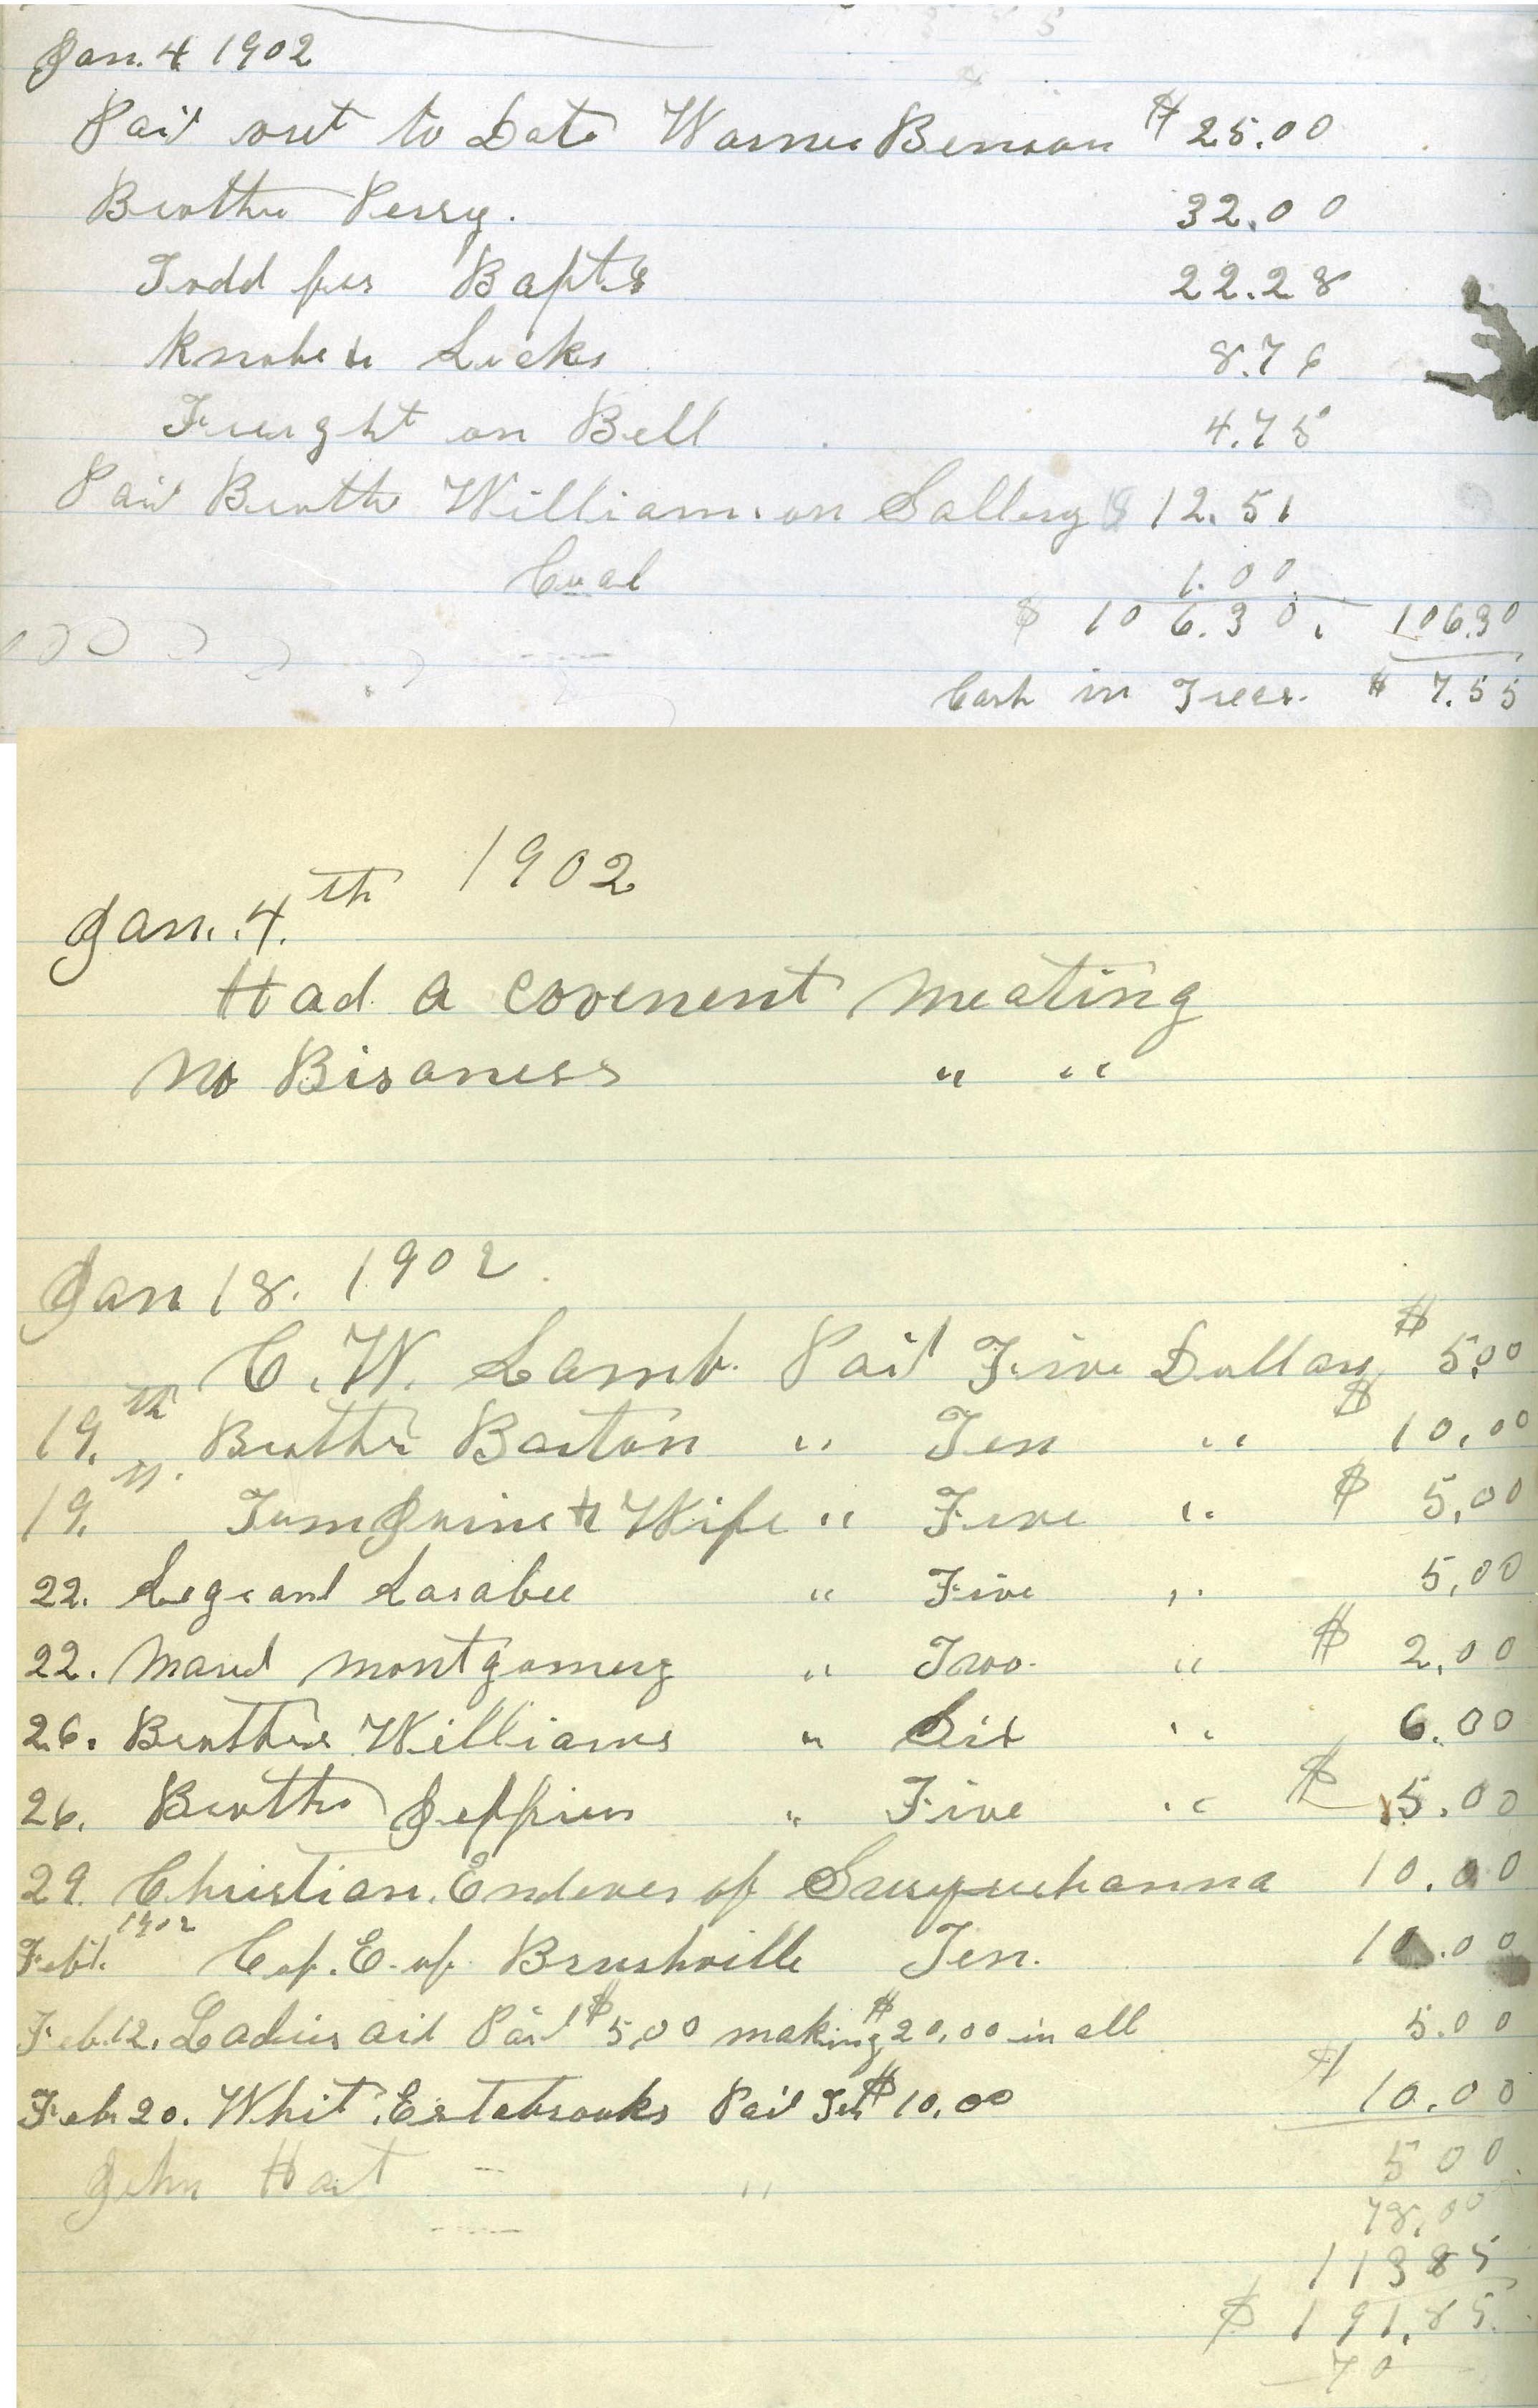 Jan. 4 1902
Paid out to Date Warner Benson $ 25.00
Brother Perry. 32.00
Todd for Bapts 22.28
Knobe & Licks 8.76
Freight on Bell 4.75
Paid Brother Williams on Sallery $ 12.51
Coal 1.00
$ 106.30. 106.30
Cash in Treas. $ 7.55
Jan. 4th 1902
Had a covenent meating
No Bisoness " "
Jan 18. 1902.
C. W. Lamb. Paid Five Dollars $ 5.00
19.th Brother Barton " Ten " $ 10.00
19. & Wife " Five " $ 5.00
22. Larabee " Five " 5,00
22. Maud montgomery " Two. " $ 2,00
26. Brother Williams " Six " 6.00
26. Brother Jeffries " Five " $ 5.00
29. Christian. Endever of Susquehanna 10.00
Feb 1. 1902 C. of. E. of. Brushville Ten. 10.00
Feb. 12. Ladies aid Paid $ 5,00 making $ 20,00 in all 5.00
Feb 20. Whit. Estabrooks Paid Ten $ 10.00 $ 10.00
John Hart " 5 00
78,00
113 85
$ 191.85
70